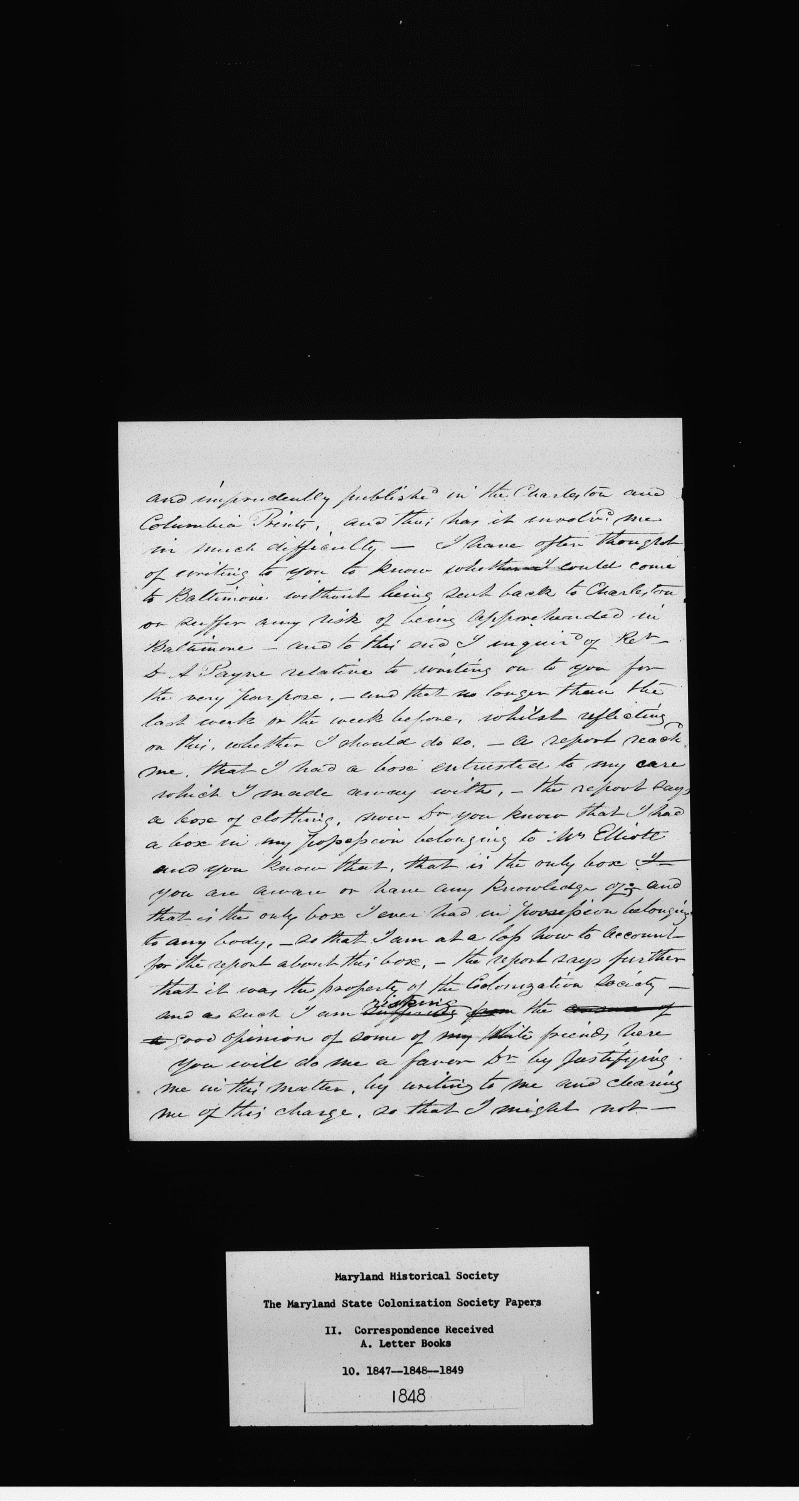 and imprudently published in the Charleston and
Columbia Prints, and thus has it involvd me
in much difficulty — I have often thought
of writing to you to know whether I could come
to Baltimore without being sent back to Charleston
or suffer any risk of being apprehended in
Baltimore — and to this end I inquird of Revd
D A Payne relative to writing on to you for
the very purpose, — and that no longer than the
last week or the week before, whilst reflecting
on this, whether I should do so, — a report reachd
me, that I had a box entrusted to my care
which I made away with, — the report says
a box of clothing, now Dr you know that I had
a box in my possession belonging to Mr Elliott
and you know that, that is the only box I
you are aware or have any knowledge of; and
that is the only box I ever had in possession belonging
to any body, — so that I am at a loss how to account
for the report about this box, — the report says further
that it was the property of the Colonization Society —
and as such I am risking the
good opinion of some of my white friends here
you will do me a favor Dr by Justifying
me in this matter, by writing to me and clearing
me of this charge, so that I might not —
Maryland Historical Society
The Maryland State Colonization Society Papers
II. Correspondence Received
A. Letter Books
10. 1847--1848--1849
1848